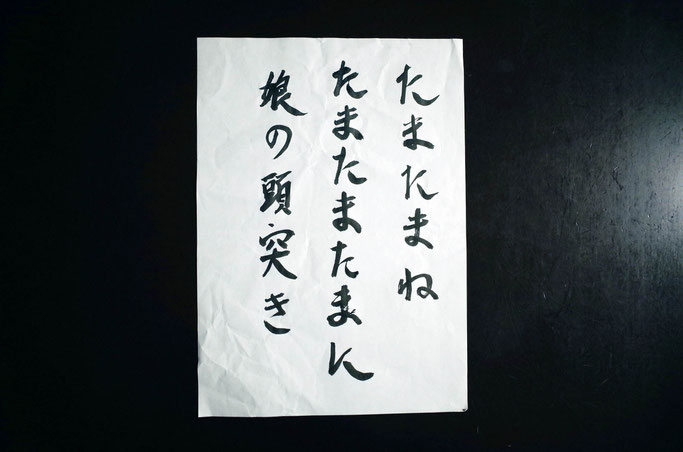 たまたまね
たまたまたまに
娘の頭突き